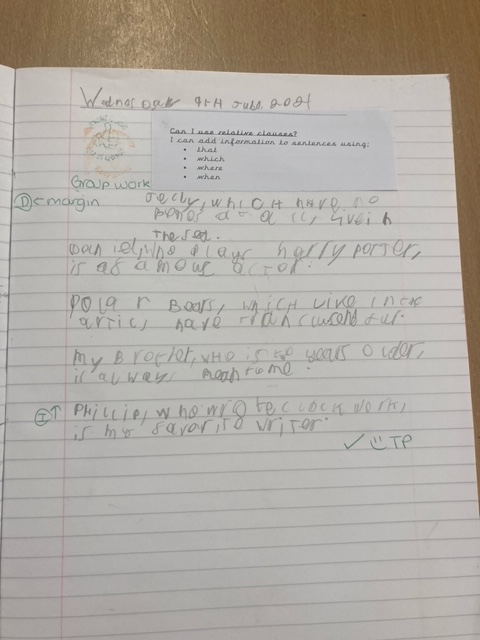 Wednesday 9th June 2021
Can I use relative clauses?
I can add information to sentences using:
• that
• which
• where
• when
Group work
D < margin
Jelly, which have no
bones at all, live in
the sea.
who plays harry poter,
is a famous actor.
Polar Bears, which live in the
artic, have translucent fur.
my Brother, who is years older,
is always mean to me.
I ↑
Phillip, who wrote clock work,
is my favorite writer.
✓ ☺ TP